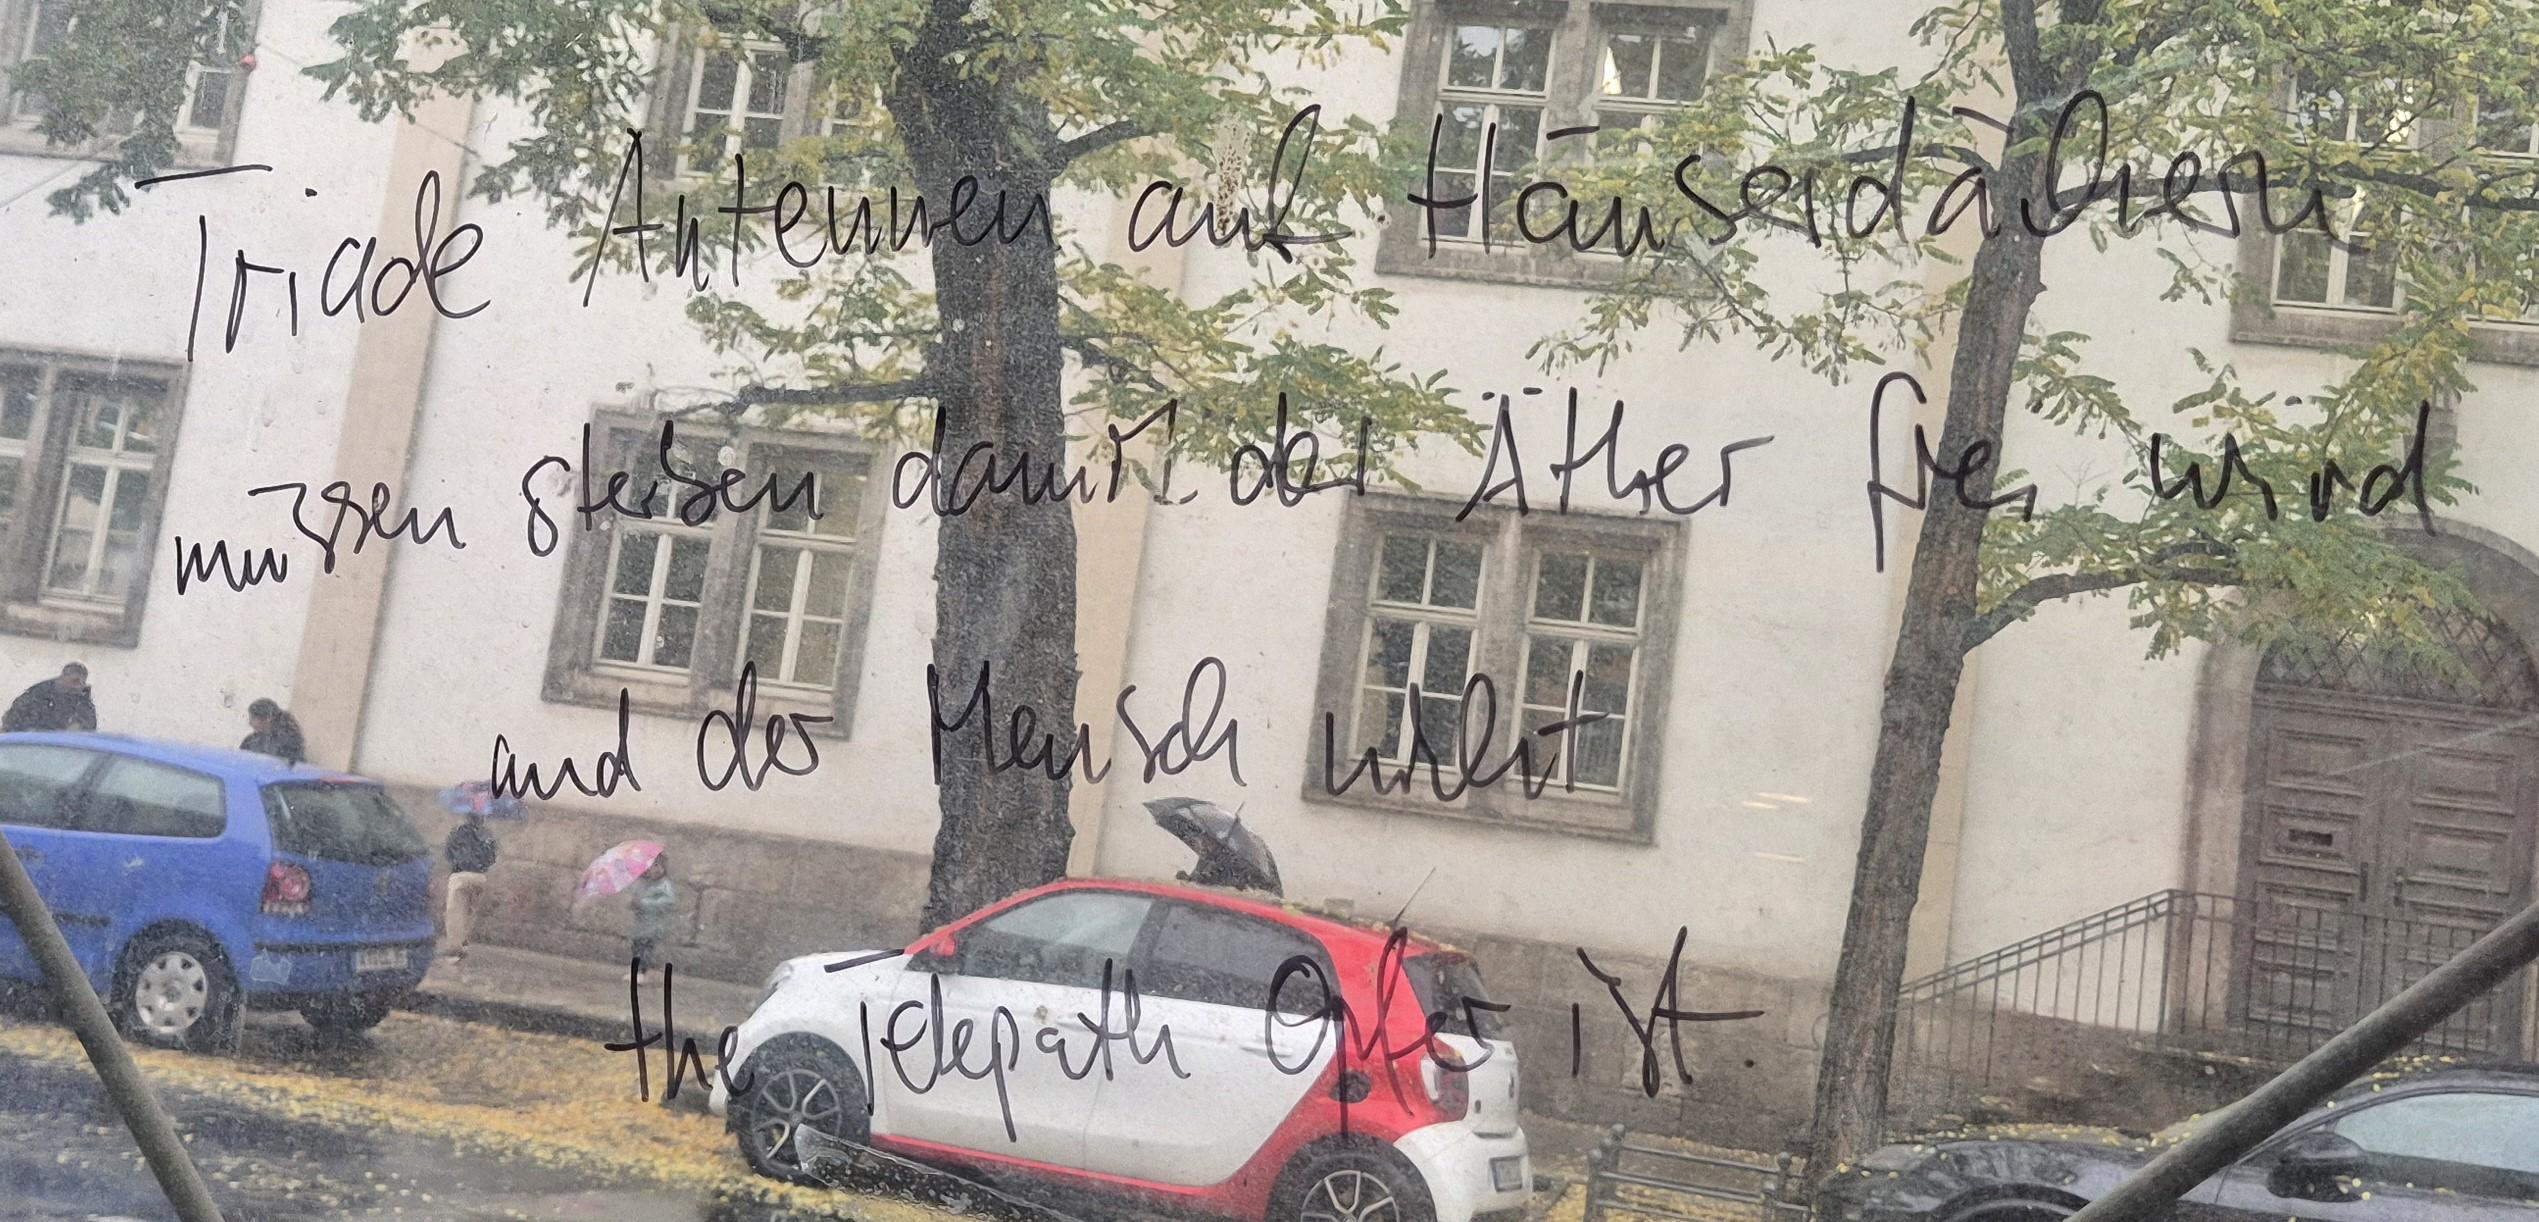 Triade Antennen auf Häuserdächern
müssen sterben damit der Äther frei wird
und der Mensch nicht
the Telepath Opfer ist.